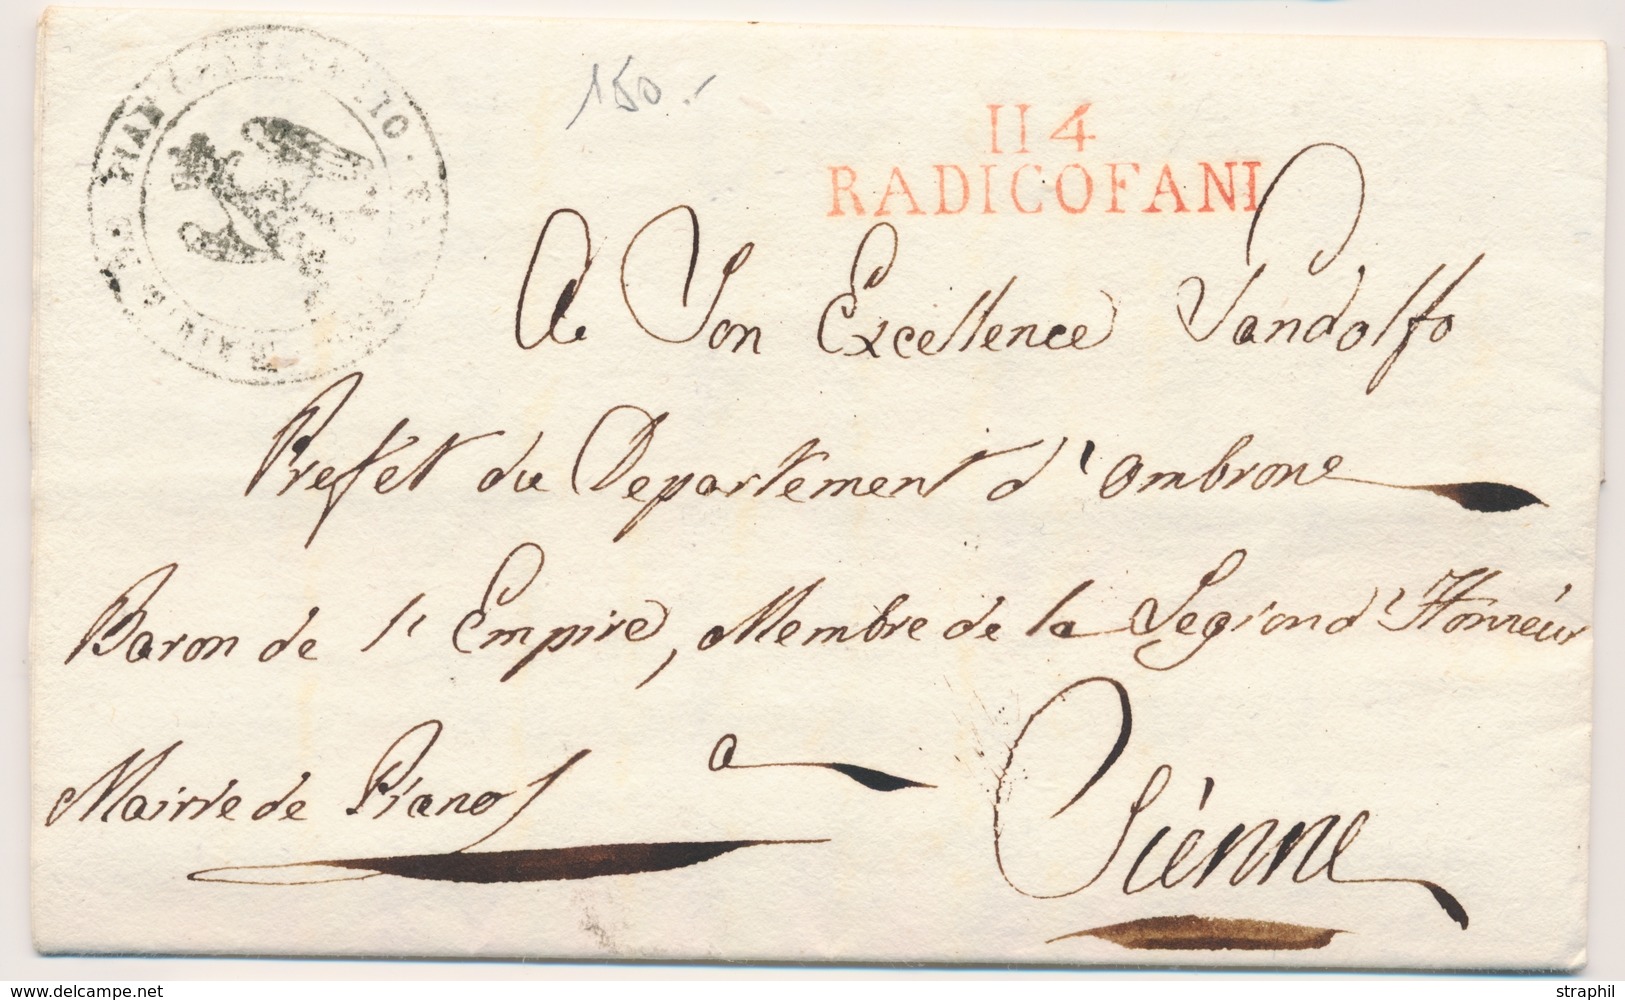 150.-
114
RADICOFANI
A Son Excellence Gandolfo
Prefet du Departement d'Ombrone
Baron de l'Empire, Membre de la Legion d'Honneur
a
Mairie de Piano
Sienne
delcampe.net
straphil